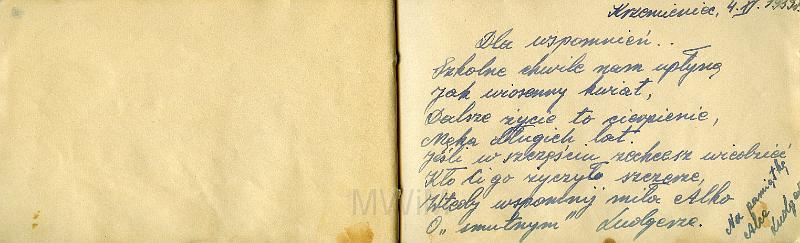 Krzemieniec, 4.VI.1939r.
Dla wspomnień..
Szkolne chwile nam upłyną
Jak wiosenny kwiat,
Dalsze życie to cierpienie,
Męka długich lat.
Jeśli w szczęściu zechcesz wiedzieć
Kto Ci go życzył szczerze,
Wtedy wspomnij miła Alko
O „smutnym" Ludgerze.
Na pamiątkę
Alce
Ludger